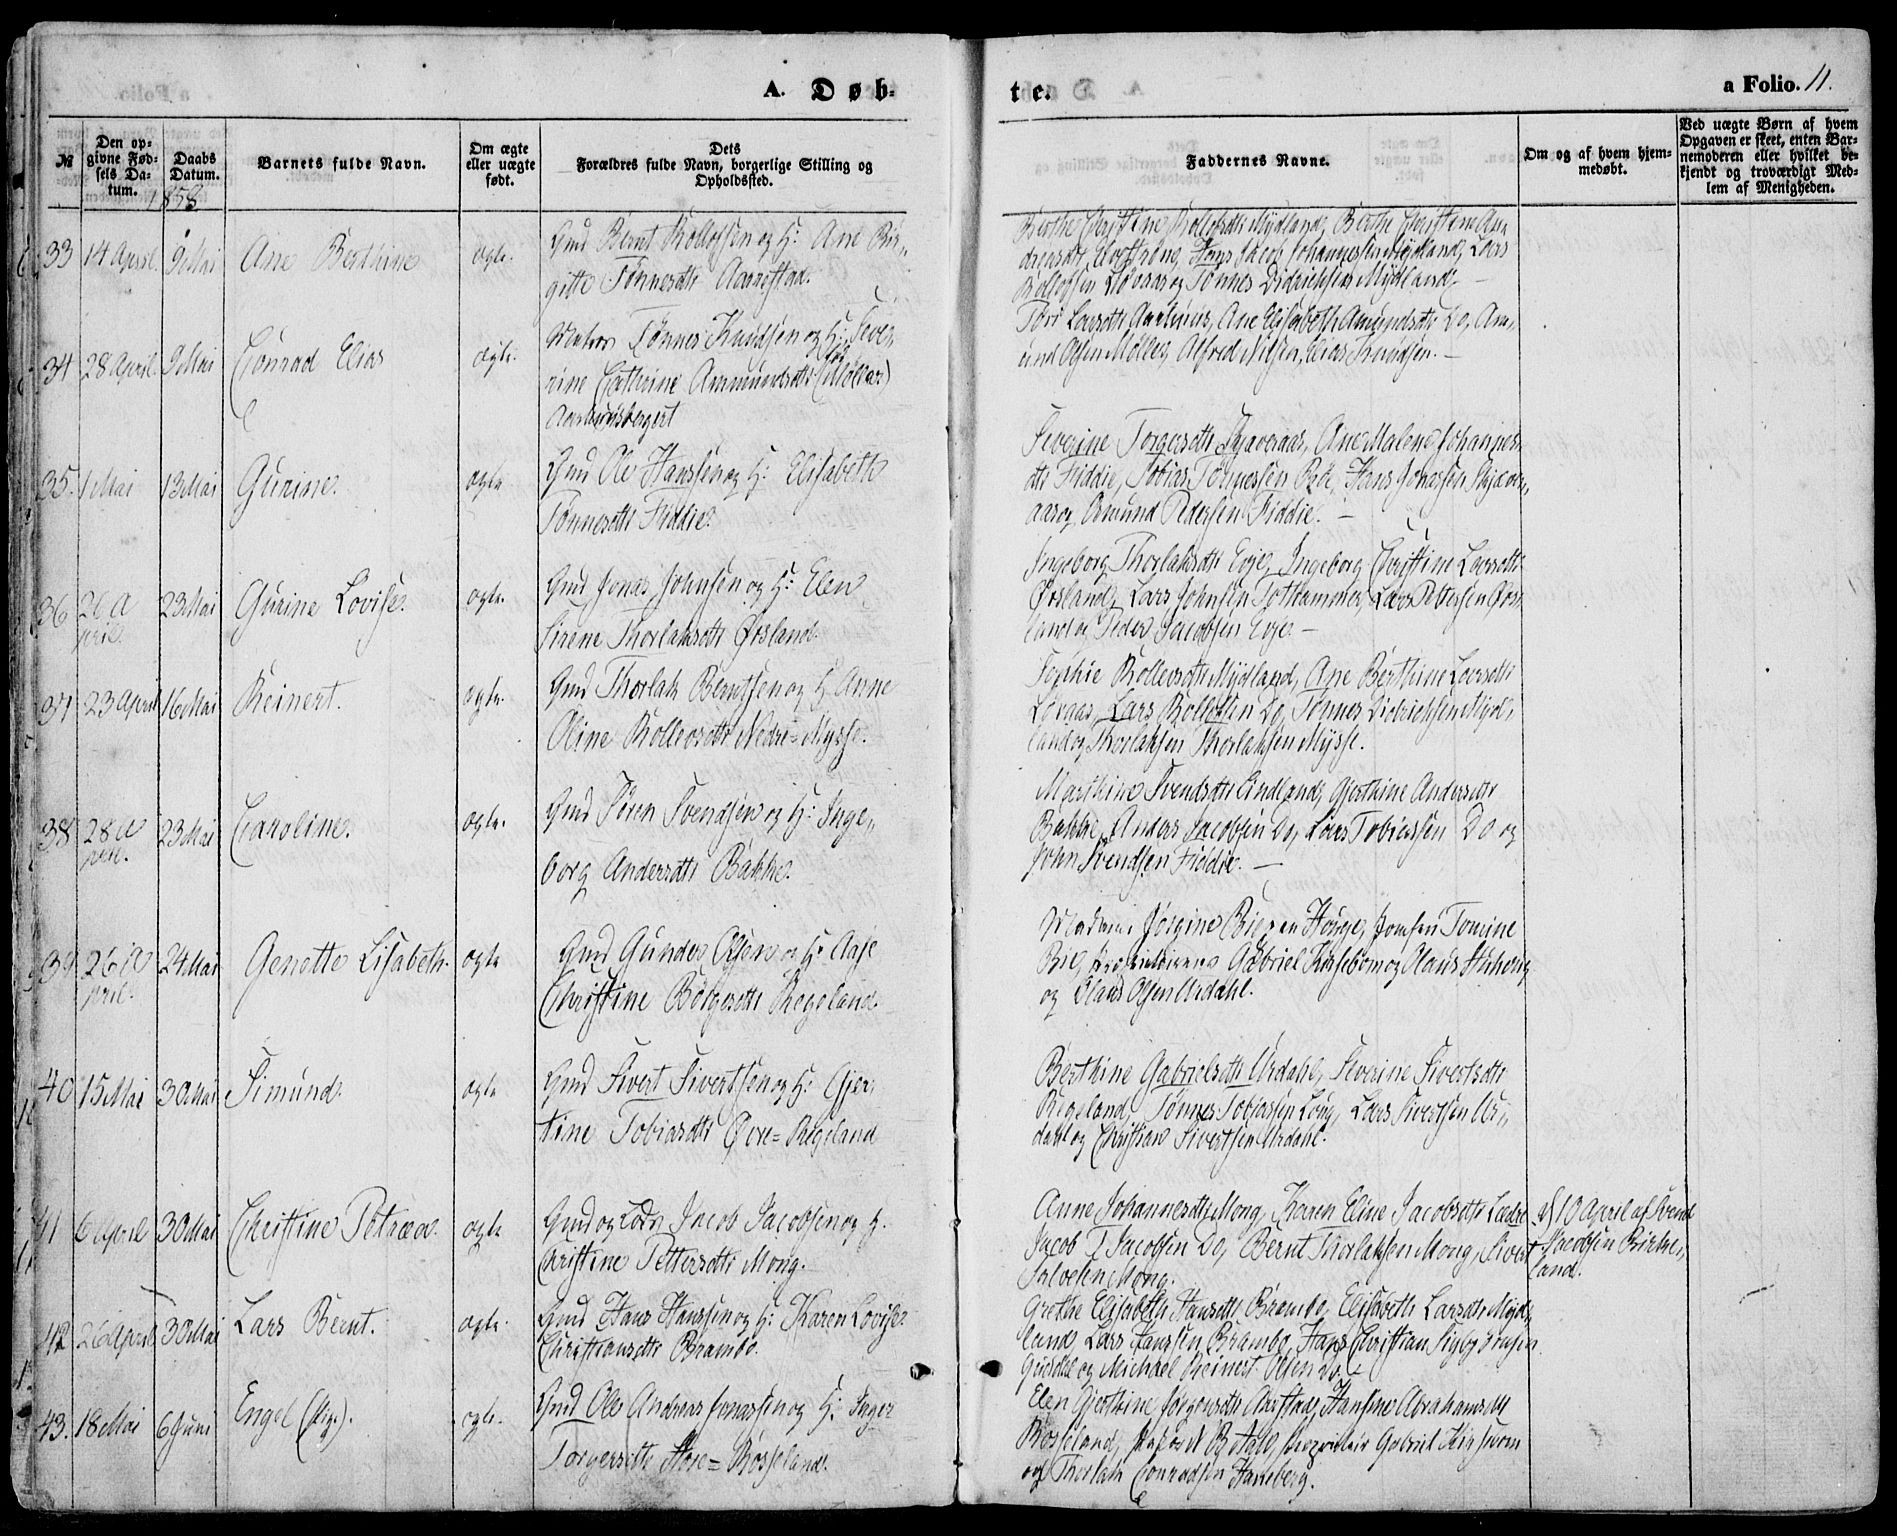 A. Døb-
te.
a Folio. 11.
№
Den op-
givne Fød-
sels Da-
tum.
Daabs
Datum.
Barnets fulde Navn.
Om ægte
eller uægte
født.
Dets
Forældres fulde Navn, borgerlige Stilling og
Opholdssted.
Faddernes Navne.
Om og af hvem hjem-
medøbt.
Ved uægte Børn af hvem
Opgaven er skeet, enten Bar-
nemoderen eller hvilket be-
kjendt og troværdigt Med-
lem af Menigheden.
1858
33 14 April 9 Mai Ane Berthine ægte. Gmd Bernt Rollefsen og H: Ane Bir„
gitte Tønnesdtr Aarrestad.
Berthe Christine Rollefsdtr Mydland, Berthe Christine An„
Hans Jacob Johannessen Mydland, Lars
Rollefsen Løvaas og Tønnes Didriksen Mydland. —
34 28 April 9 Mai Conrad Elias ægte. Tønnes Knudsen og H: Seve„
rine Cathrine Ammundsdtr
Ane Elisabeth Amundsdtr Do, Am„
und Olsen Alfred Nilsen, Elias Knudsen. —
35. 1 Mai 13 Mai Gurine. ægte Gmd Ole Hanssen og H: Elisabeth
Tønnesdtr Fiddie.
Severine Torgersdtr Skjæveraas, Ane Malene Johannes„
dtr Fiddie, Tobias Tønnessen Hans Jonassen Skjæver„
aas og Osmund Pedersen Fiddie. —
36 26 A
pril. 23 Mai Gurine Lovise. ægte. Gmd Jonas Johnsen og H: Elen
Sirene Thorlaksdtr Ørsland.
Ingeborg Thorlaksdtr Eeje, Ingeborg Christine Larsdtr
Ørsland, Lars Johnsen Lars Pettersen Ørs
land og Peder Jacobsen Eeje. —
37 23 April 16 Mai Reinert. ægte. Gmd Thorlak Berntsen og H: Anne
Oline Rollevsdtr Nedre=Mysse.
Sophie Rollevsdtr Mydland, Ane Berthine Larsdtr
Løvaas, Lars Rollefsen Do, Tønnes Didriksen Myd„
land og Thorlaksen Mysse.
38 28 A
pril. 23 Mai Caroline. ægte. Gmd Søren Svendsen og H: Inge„
borg Andersdtr Bakke.
Marthine Svendsdtr Lindland, Gjerthine Andersdtr
Bakke, Anders Jacobsen Do, Lars Tobiassen Do og
John Svendsen Fiddie. —
39 26 A
pril. 24 Mai Genette Lisabeth. ægte Gmd Gunder Olsen og H: Aase
Christine Børgesdtr Regeland.
Madame Jørgine Bie Jomfru Tomine
Bie, Gabriel Kirsebom og Olaus
og Olaus Olsen Urdahl.
40 15 Mai 30 Mai Simund. ægte Gmd Sivert Sivertsen og H: Gjer„
tine Tobiasdtr Øvre=Regeland
Berthine Gabrielsdtr Urdahl, Severine Sivertsdtr
Regeland, Tønnes Tobiassen Lars Sivertsen Ur„
dahl og Christian Sivertsen Urdahl.
41 6 April 30 Mai Christine Petræa. ægte Gmd og Lods Jacob Jacobsen og H.
Christine Pettersdtr Mong.
Anne Johannesdtr Mong, Karen Eline Jacobsdtr
Jacob T Jacobsen Do, Bernt Thorlaksen Mong, Sivert
Salvesen Mong.
10 April af Svend
Jacobsen Birke„
land.
42 26 April 30 Mai Lars Bernt. ægte. Gmd Hans Hanssen og H: Karen Lovise
Christiansdtr Brambo.
Grethe Elisabeth Hansdtr Brambo, Elisabeth Larsdtr Myd„
land, Lars Hanssen Brambo, Hans Christian
og Michael Reinert Olsen Do. —
43. 18 Mai 6 Juni Engel (Pige). ægte. Gmd Ole Andreas Jonassen og H: Inger
Torgersdtr Store=Røsseland.
Elen Gjerthine Jørgensdtr Aarstad, Hansine Abrahamsdtr
Røsseland, Gabriel Kirsebom
og Thorlak Conradsen Haneberg.